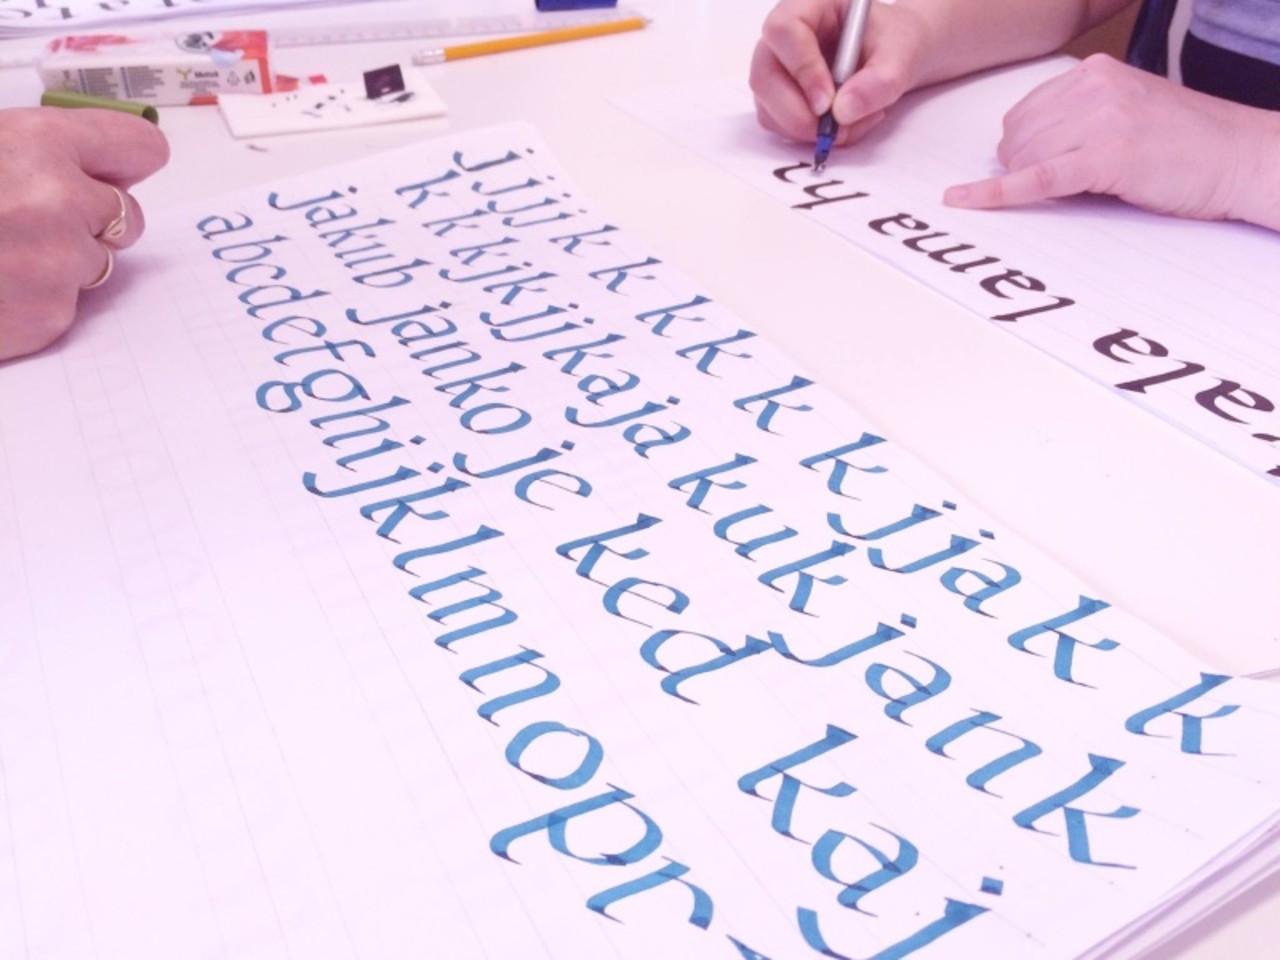 j j jj k k k k k k j ja k k
k k k jk jj kaja kuk jank
jakub janko je ked kaj
abcdefghijklmnopr